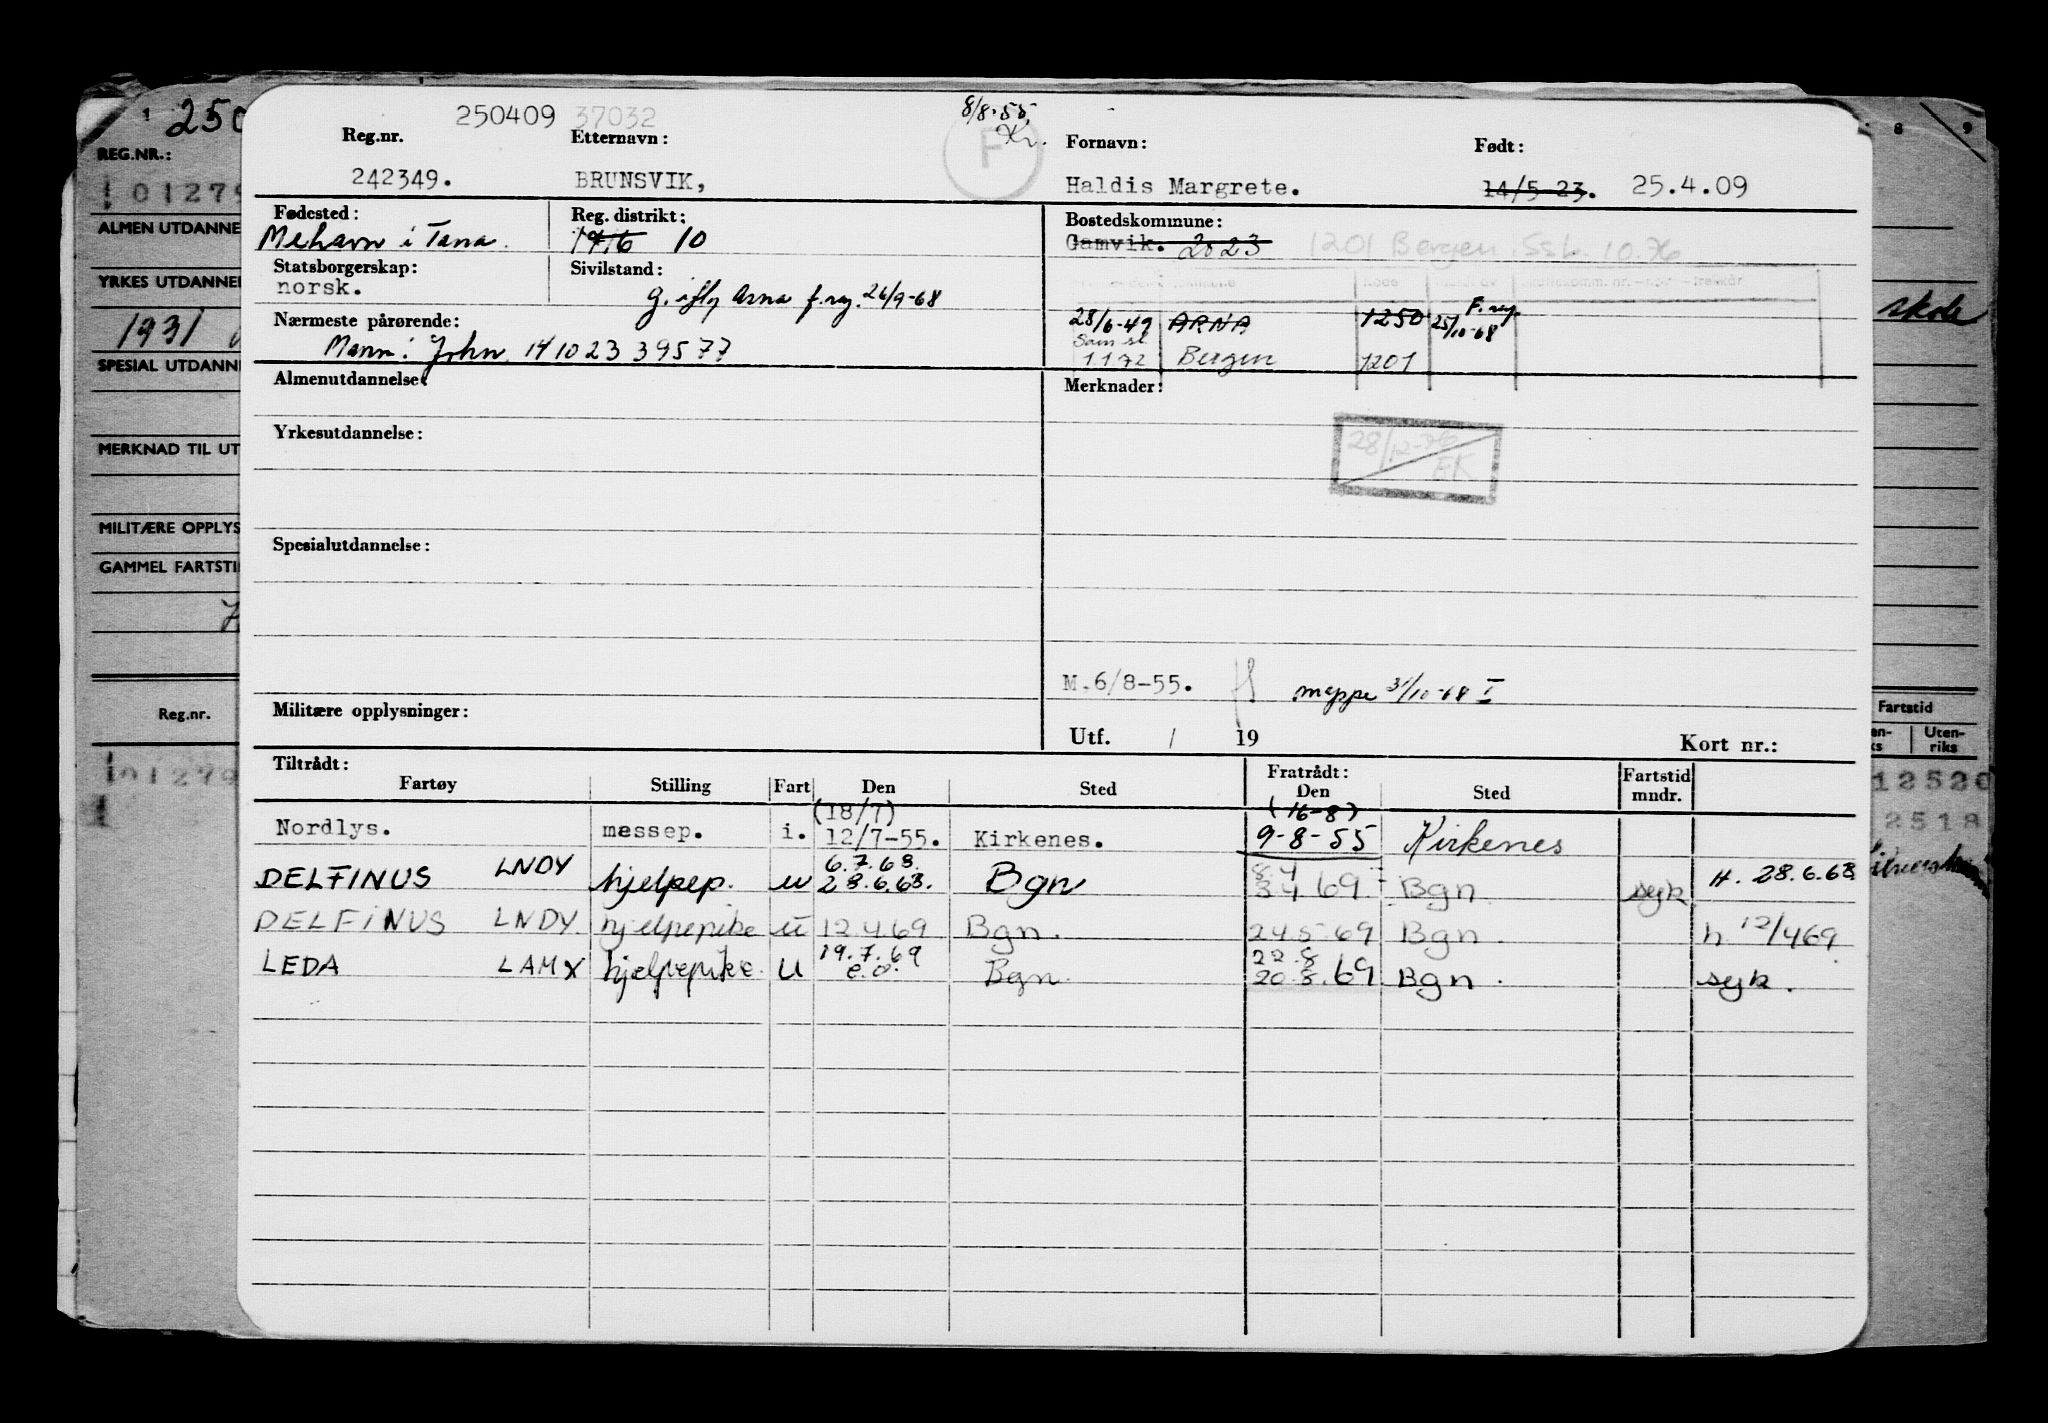 250409 37032
8/8-55.
Kr.
F
Reg.nr.
Etternavn:
Fornavn:
Født:
242349.
BRUNSVIK,
Haldis Margrete.
14/5-23. 25.4.09
Fødested:
Reg. distrikt:
Bostedskommune:
Mehavn i Tana.
1916 10
Gamvik. 2023
1201 Bergen, Ssk. 10.76
Statsborgerskap:
Sivilstand:
norsk.
g. iflg Arna f.reg. 26/9-68
28/6-49 ARNA 1250 25/10-68 F. reg.
Nærmeste pårørende:
Mann: John 141023 39577
1 1 72 Bergen 1201
Almenutdannelse:
Merknader:
28/12-76
EK
Yrkesutdannelse:
Spesialutdannelse:
M.6/8-55.
mappe 31/10-68 I
Militære opplysninger:
Utf. / 19
Kort nr.:
Tiltrådt:
Fratrådt:
Fartøy Stilling Fart Den Sted Den Sted Fartstid mndr.
(18/7) (16-8)
Nordlys. messep. i. 12/7-55. Kirkenes. 9-8-55 Kirkenes
6.7.68. 8.4
DELFINUS LNDY hjelpep. u 28.6.68. Bgn 3.4 69 Bgn syk H. 28.6.68
DELFINUS LNDY. hjelpepike u 12.4.69 Bgn. 24.5.69 Bgn. h 12/469
19.7.69 22.8
LEDA LAMX hjelpepike. U e.o. Bgn. 20.8.69 Bgn. syk.
1 250
REG.NR.:
01279
ALMEN UTDANNE
YRKES UTDANNE
1931
SPESIAL UTDANN
MERKNAD TIL UT
MILITÆRE OPPLYS
GAMMEL FARTSTI
Reg.nr.
01279
8 9
skole
Fartstid
Uten-
riks
12520
2518